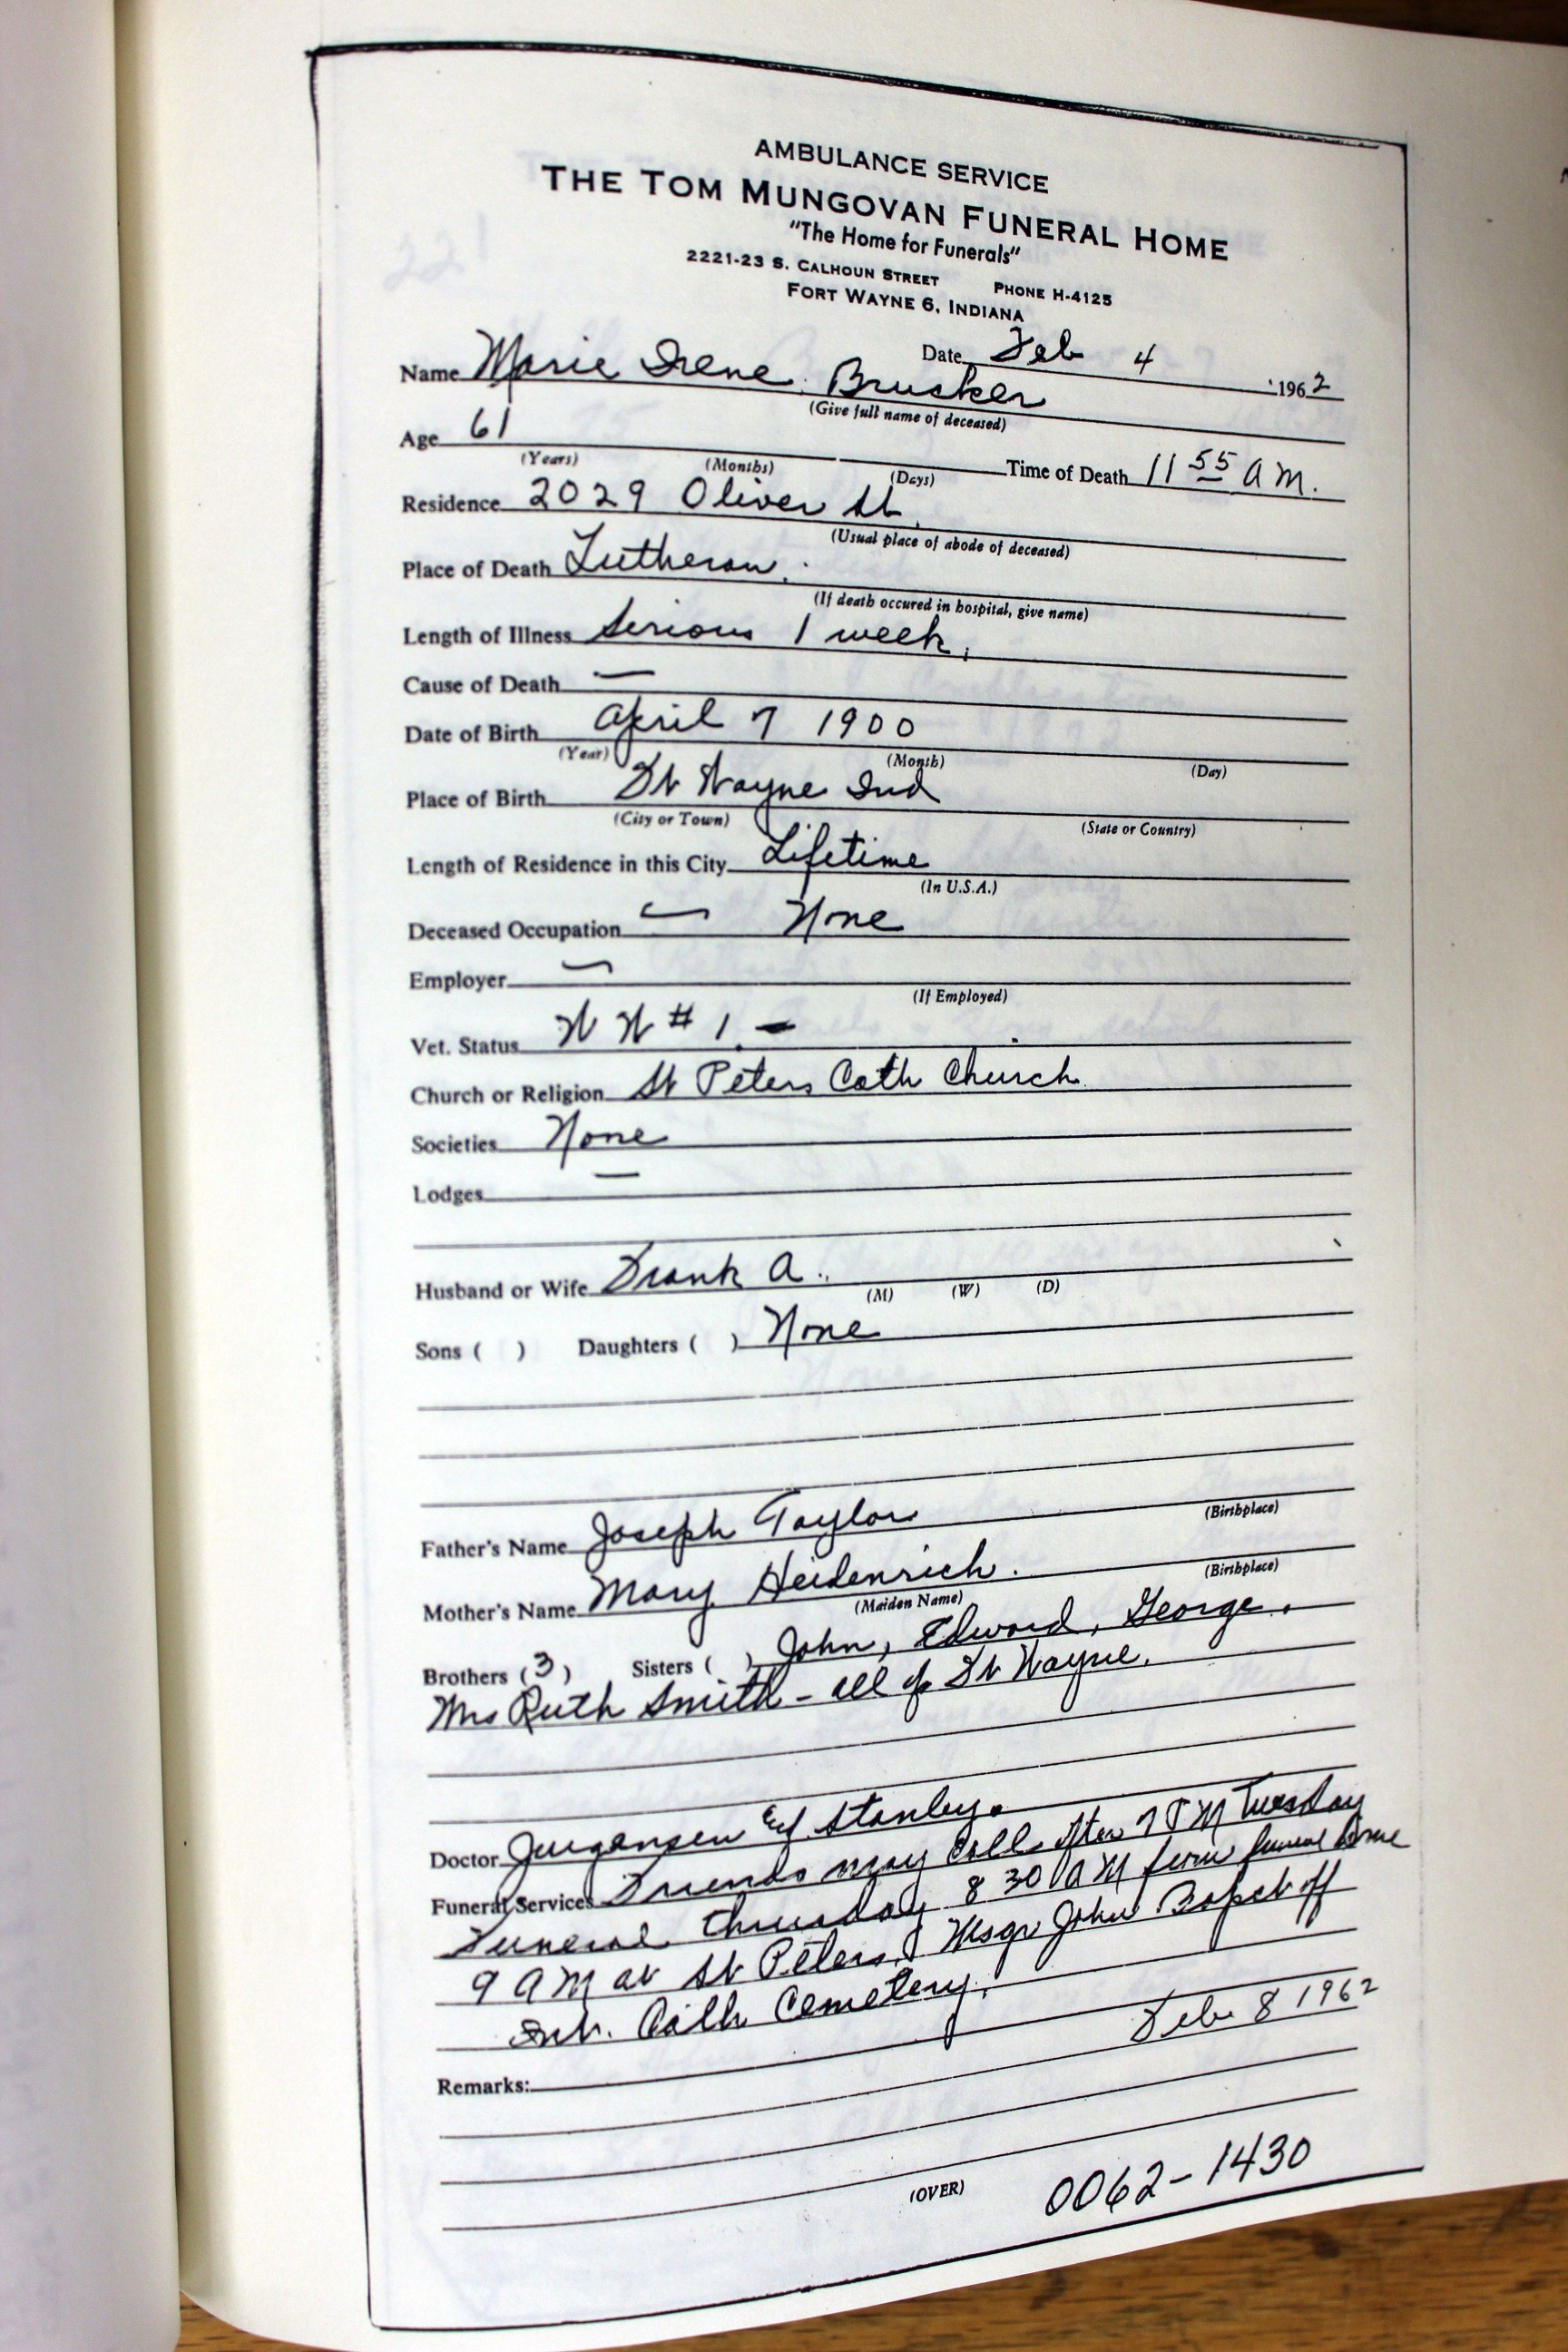 AMBULANCE SERVICE
THE TOM MUNGOVAN FUNERAL HOME
"The Home for Funerals"
2221-23 S. CALHOUN STREET PHONE H-4125
FORT WAYNE 6, INDIANA
Date Feb 4 1962
Name Marie Irene Brusker
(Give full name of deceased)
Age 61 Time of Death 11 55 A M.
(Years) (Months) (Days)
Residence 2029 Oliver St.
(Usual place of abode of deceased)
Place of Death Lutheran.
(If death occured in hospital, give name)
Length of Illness Serious 1 week.
Cause of Death —
Date of Birth April 7 1900
(Year) (Month) (Day)
Place of Birth Ft Wayne Ind
(City or Town) (State or Country)
Length of Residence in this City Lifetime
(In U.S.A.)
Deceased Occupation — None
Employer —
(If Employed)
Vet. Status W W # 1. —
Church or Religion St Peters Cath Church.
Societies None
Lodges —
Husband or Wife Frank A.
(M) (W) (D)
Sons ( ) Daughters ( ) None
Father's Name Joseph Taylor
(Birthplace)
Mother's Name Mary Heidenrich.
(Maiden Name) (Birthplace)
Brothers (3) Sisters ( ) John, Edward, George.
Mrs Ruth Smith - all of Ft Wayne.
Doctor Jurgensen Stanley.
Funeral Services Friends may call after 7 P M Tuesday
Funeral thursday 8 30 A M from funeral home
9 A M at St Peters. Msgr John Bapst off
Int. Cath Cemetery.
Feb 8 1962
Remarks:
(OVER)
0062-1430